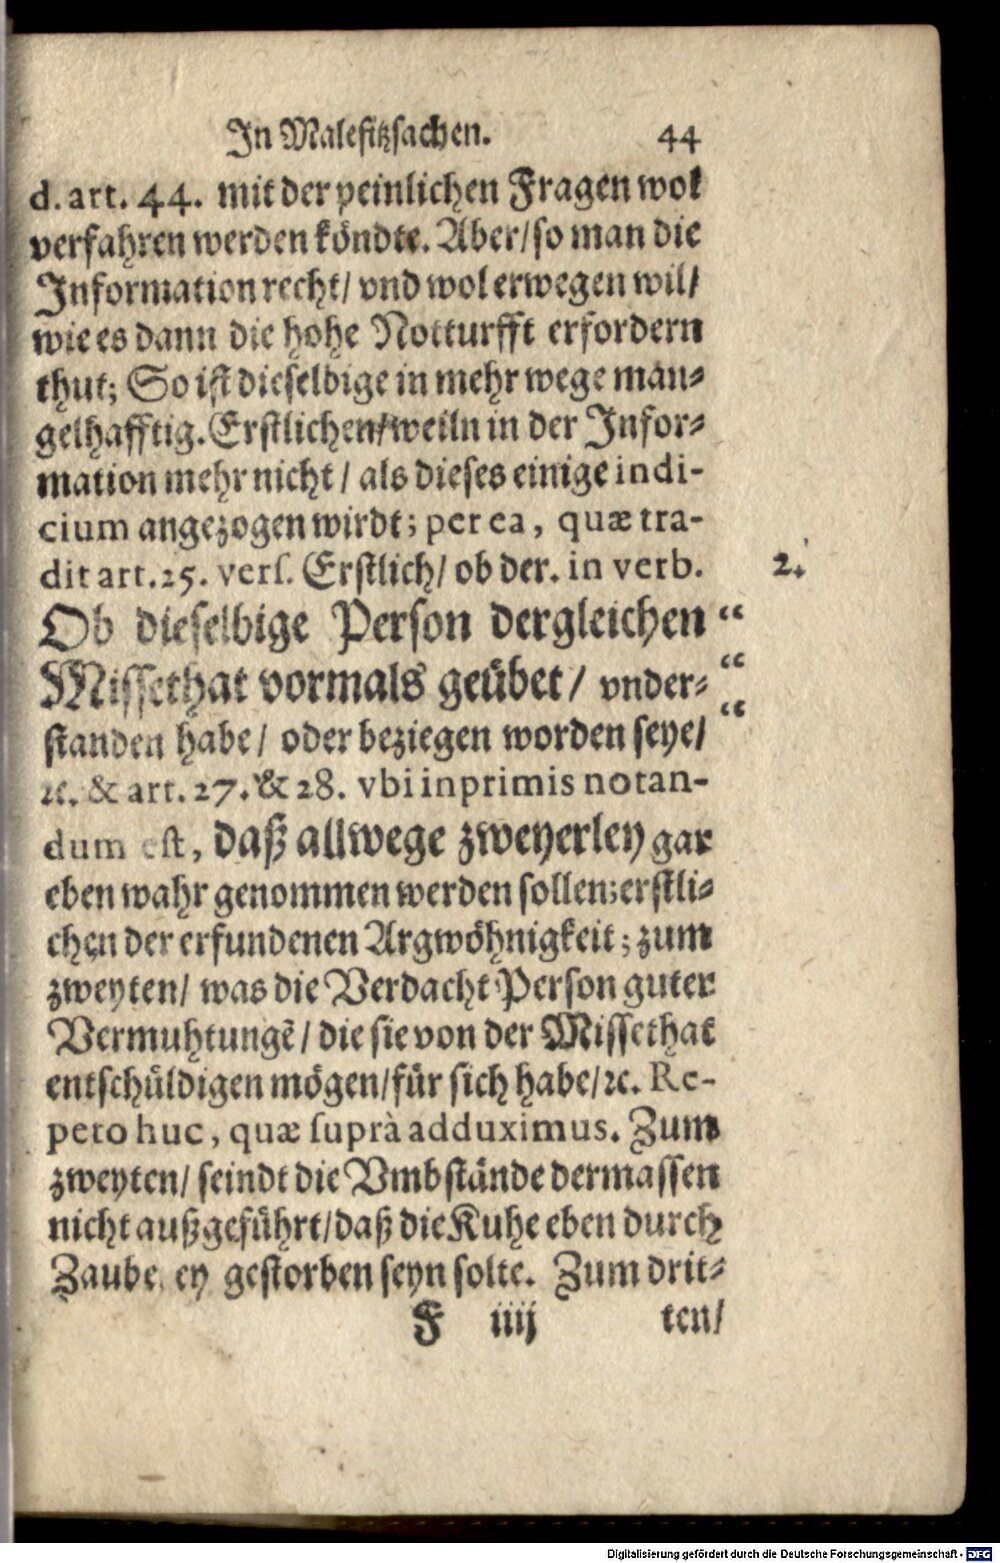 In Malefitzsachen. 44
d. art. 44. mit der peinlichen Fragen wol
verfahren werden köndte. Aber/ so man die
Information recht/ vnd wol erwegen wil/
wie es dann die hohe Notturfft erfordern
thut; So ist dieselbige in mehr wege man-
gelhafftig. Erstlichen/ weiln in der Infor-
mation mehr nicht/ als dieses einige indi-
cium angezogen wirdt; per ea, quæ tra-
dit art. 25. vers. Erstlich/ ob der. in verb. 2.
Ob dieselbige Person dergleichen “
Missethat vormals geübet/ vnder- “
standen habe/ oder beziegen worden seye/ “
ꝛc. & art. 27. & 28. vbi inprimis notan-
dum est, daß allwege zweyerley gar
eben wahr genommen werden sollen; erstli-
chen der erfundenen Argwöhnigkeit; zum
zweyten/ was die Verdacht Person guter
Vermuhtungē/ die sie von der Missethat
entschüldigen mögen/ für sich habe/ ꝛc. Re-
peto huc, quæ suprà adduximus. Zum
zweyten/ seindt die Vmbstände dermassen
nicht außgeführt/ daß die Kuhe eben durch
Zaube ey gestorben seyn solte. Zum drit-
F iiij ten/
Digitalisierung gefördert durch die Deutsche Forschungsgemeinschaft - DFG